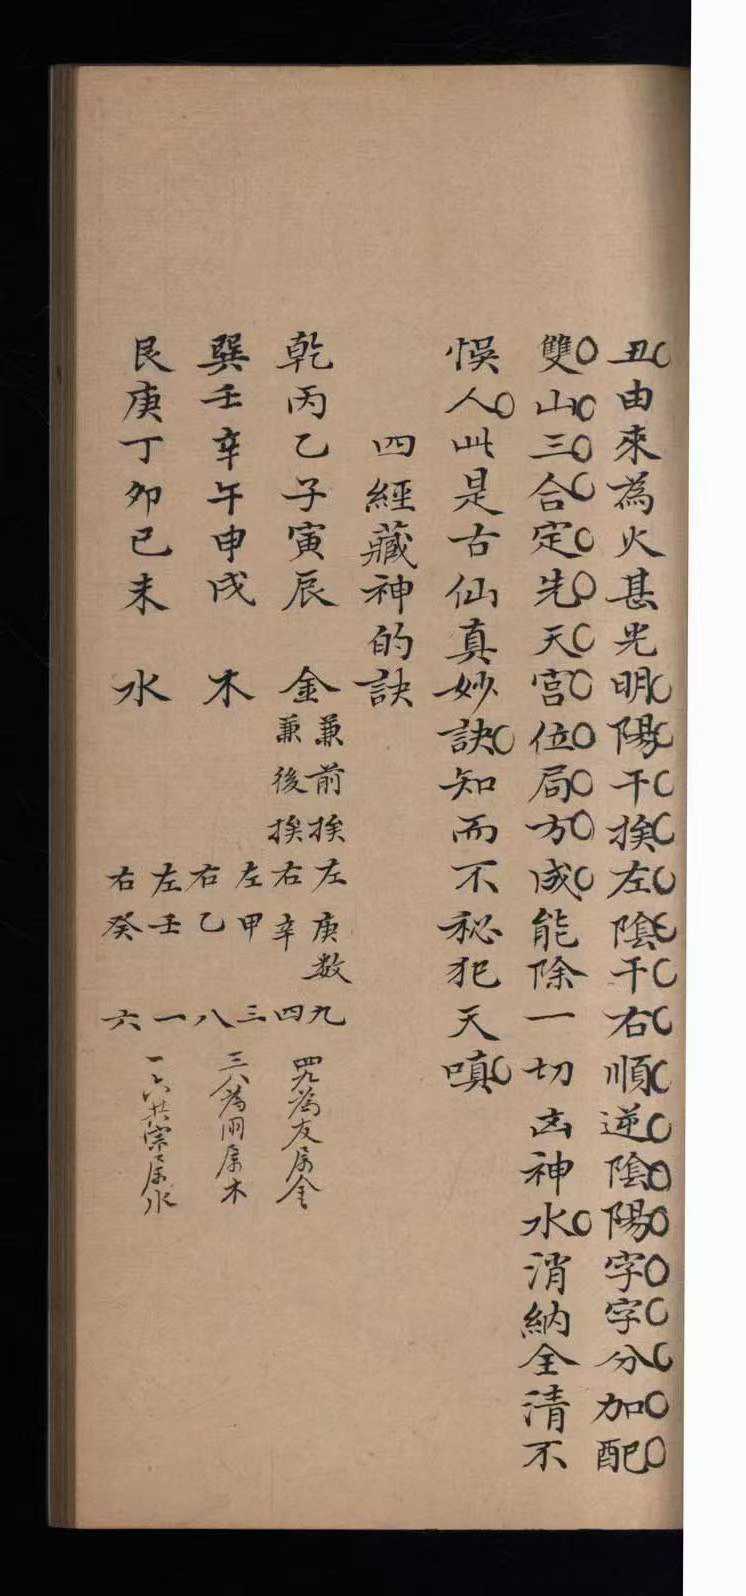 丑由來為火甚光明陽干挨左陰干右順逆陰陽字字分加配
雙山三合定先天宮位局方成能除一切凶神水消納全清不
悞人此是古仙真妙訣知而不秘犯天嗔
四經藏神的訣
乾丙乙子寅辰 金 兼前挨左庚数九
兼後挨右辛 四 四九為友属金
巽壬辛午申戌 木 左甲 三
右乙 八 三八為朋属木
艮庚丁卯巳未 水 左壬 一
右癸 六 一六共宗属水